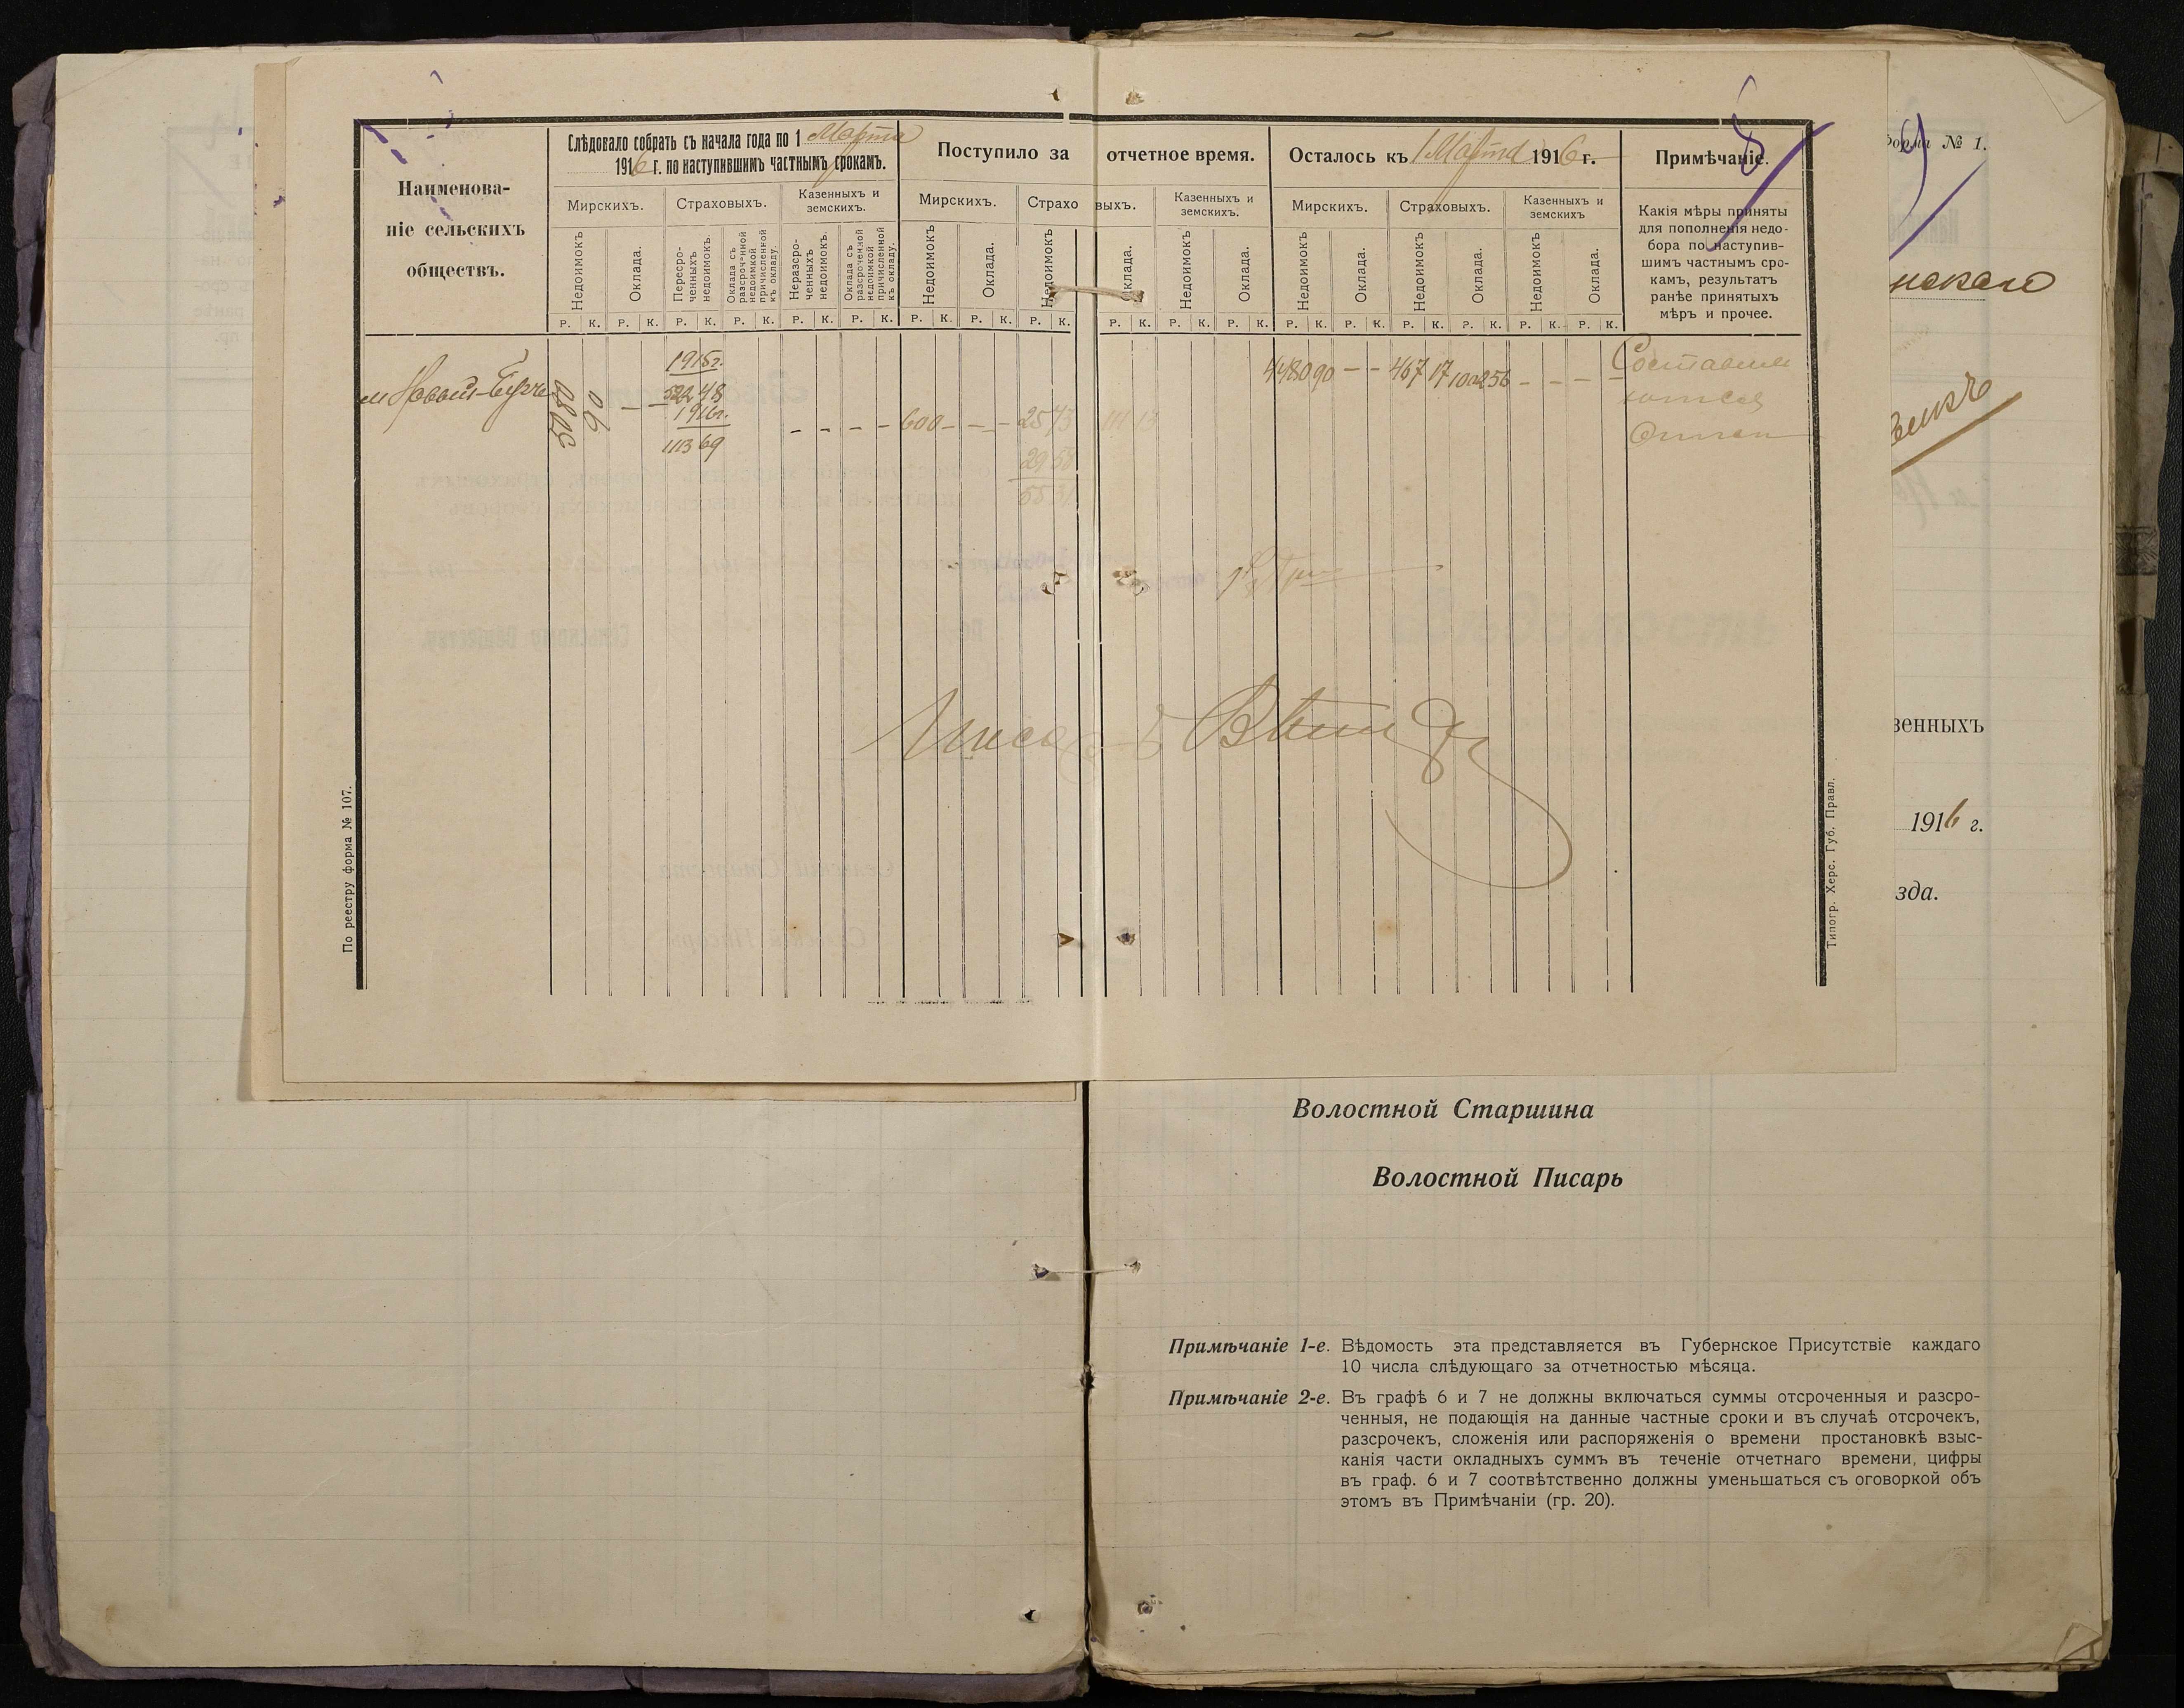 Слѣдовало собрать съ начала года по 1 Марта
1916 г. по наступившимъ частнымъ срокамъ.
Поступило за отчетное время.
Осталось къ 1 Марта 1916 г.
Примѣчаніе.
Наименова-
ніе сельскихъ
обществъ.
Мирскихъ. Страховыхъ. Казенныхъ и
земскихъ.
Мирскихъ. Страховыхъ. Казенныхъ и
земскихъ.
Мирскихъ. Страховыхъ. Казенныхъ и
земскихъ
Какія мѣры приняты
для пополненія недо-
бора по наступив-
шимъ частнымъ сро-
камъ, результатъ
ранѣе принятыхъ
мѣръ и прочее.
Недоимокъ
Оклада.
Пересро-
ченныхъ
недоимокъ.
Оклада съ
разсроченной
недоимкой
причисленной
къ окладу.
Неразсро-
ченныхъ
недоимокъ.
Оклада съ
разсроченной
недоимкой
причисленной
къ окладу.
Недоимокъ
Оклада.
Недоимокъ
Оклада.
Недоимокъ
Оклада.
Недоимокъ
Оклада.
Недоимокъ
Оклада.
Недоимокъ
Оклада.
Р. К. Р. К. Р. К. Р. К. Р. К. Р. К. Р. К. Р. К. Р. К. Р. К. Р. К. Р. К. Р. К. Р. К. Р. К. Р. К. Р. К. Р. К.
м Новый-Бугъ
5080 90 — —
1915г.
522 48
1916г.
1113 69
- - - - 600 - - - 25 73 111 13
29 58
55 31
4480 90 - - 467 17 1002 56 - - - -
По реестру форма № 107.
Типогр. Херс. Губ. Правл.
Форма № 1.
нскаго
венныхъ
1916 г.
зда.
Волостной Старшина
Волостной Писарь
Примѣчаніе 1-е. Вѣдомость эта представляется въ Губернское Присутствіе каждаго
10 числа слѣдующаго за отчетностью мѣсяца.
Примѣчаніе 2-е. Въ графѣ 6 и 7 не должны включаться суммы отсроченныя и разсро-
ченныя, не подающія на данные частные сроки и въ случаѣ отсрочекъ,
разсрочекъ, сложенія или распоряженія о времени простановкѣ взыс-
канія части окладныхъ суммъ въ теченіе отчетнаго времени, цифры
въ граф. 6 и 7 соотвѣтственно должны уменьшаться съ оговоркой объ
этомъ въ Примѣчаніи (гр. 20).